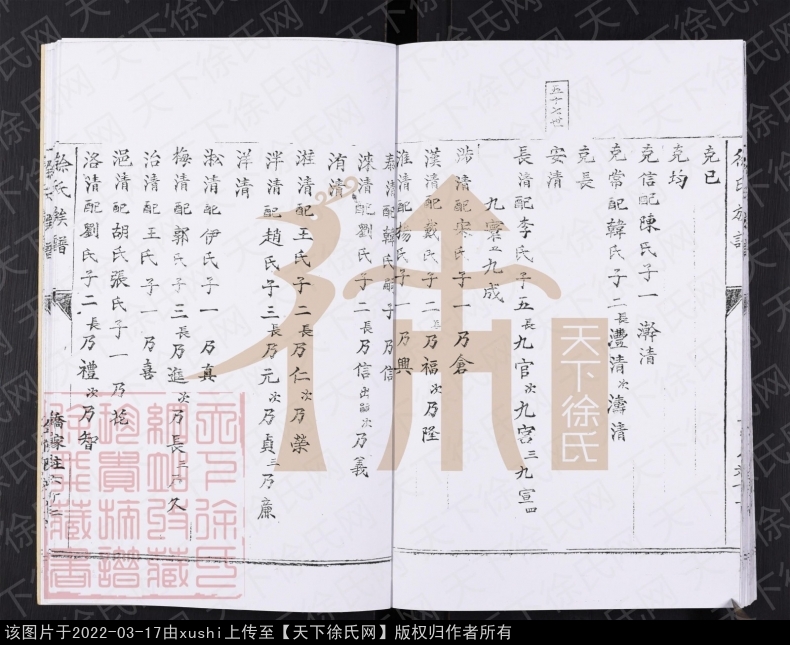 徐氏族譜
克已
克均
克信配陳氏子一澣清
克常配韓氏子二長灃清次濤清
克長
五十七世
安清
長清配李氏子五長九官次九宮三九宣四
九寰五九成
涉清配宋氏子一乃倉
漢清配戴氏子二長乃福次乃陞
淮清配楊氏子一乃興
泰清配韓氏嗣子乃信
淶清配劉氏子二長乃信出嗣次乃義
洧清
溎清配王氏子二長乃仁次乃榮
泮清配趙氏子三長乃元次乃貞三乃廉
洋清
淞清配伊氏子一乃真
梅清配郭氏子三長乃進次乃長三乃久
治清配王氏子一乃喜
浥清配胡氏張氏子一乃苑
洛清配劉氏子二長乃禮次乃智
徐氏族譜
天下徐氏
天下徐氏
紉帕敬藏
珍貴摛譜
天下徐氏网
该图片于2022-03-17由xushi上传至【天下徐氏网】版权归作者所有